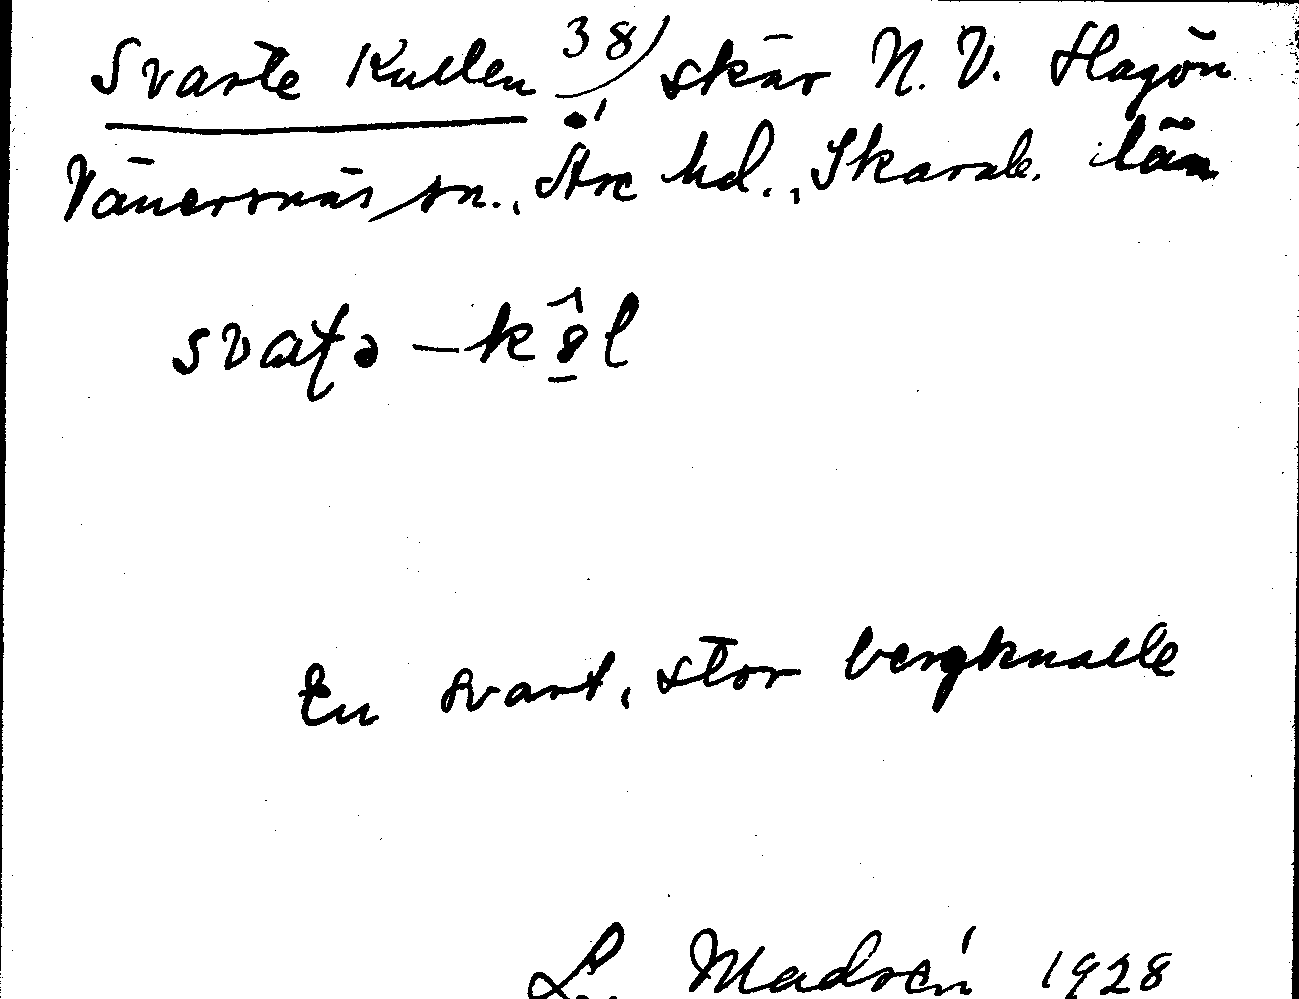 Svarte Kullen 38) skär N. V. Hagön
Vänersnäs sn., Åse hd., Skarab. län
En svart, stor bergknalle
L. Madsén 1928